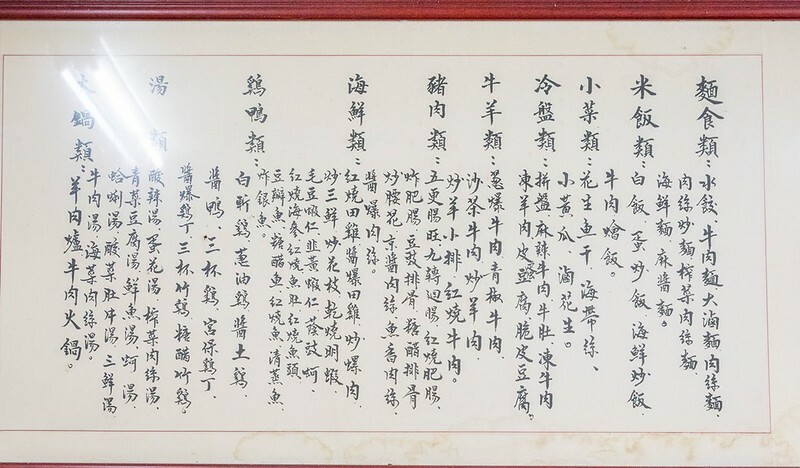 麵食類：水餃、牛肉麵、大滷麵、肉絲麵、
肉絲炒麵、榨菜肉絲麵、
海鮮麵、麻醬麵。
米飯類：白飯、蛋炒飯、海鮮炒飯、
牛肉燴飯。
小菜類：花生魚干、海帶絲、
小黃瓜、滷花生。
冷盤類：拼盤、麻辣牛肉、牛肚、凍牛肉
凍羊肉、皮蛋豆腐、脆皮豆腐。
牛羊類：蔥爆牛肉、青椒牛肉
沙茶牛肉、炒羊肉、
炒羊小排、紅燒牛肉。
豬肉類：五更腸旺、九轉迴腸、紅燒肥腸、
炸肥腸、豆豉排骨、糖醋排骨
炒腰花、京醬肉絲、魚香肉絲、
醬爆肉絲。
海鮮類：紅燒田雞、醬爆田雞、炒螺肉、
炒三鮮、炒花枝、乾燒明蝦、
毛豆蝦仁、韭黃蝦仁、蔭豉蚵、
紅燒海參、紅燒魚肚、紅燒魚頭、
豆瓣魚、糖醋魚、紅燒魚、清蒸魚、
炸銀魚。
鷄鴨類：白斬鷄、蔥油鷄、醬土鷄、
醬鴨、三杯鷄、宮保鷄丁、
醬爆鷄丁、三杯竹鷄、糖醋竹鷄。
湯類：酸辣湯、蛋花湯、榨菜肉絲湯、
青菜豆腐湯、鮮魚湯、蚵湯、
蛤蜊湯、酸菜肚片湯、三鮮湯
牛肉湯、海菜肉絲湯。
火鍋類：羊肉爐、牛肉火鍋。